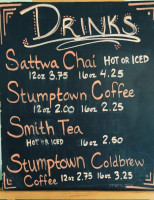 DRINKS
Sattwa Chai HOT OR ICED
12oz 3.75 16oz 4.25
Stumptown Coffee
12oz 2.00 16oz 2.25
Smith Tea
HOT OR ICED 16oz 2.50
Stumptown Coldbrew
Coffee 12oz 2.75 16oz 3.25